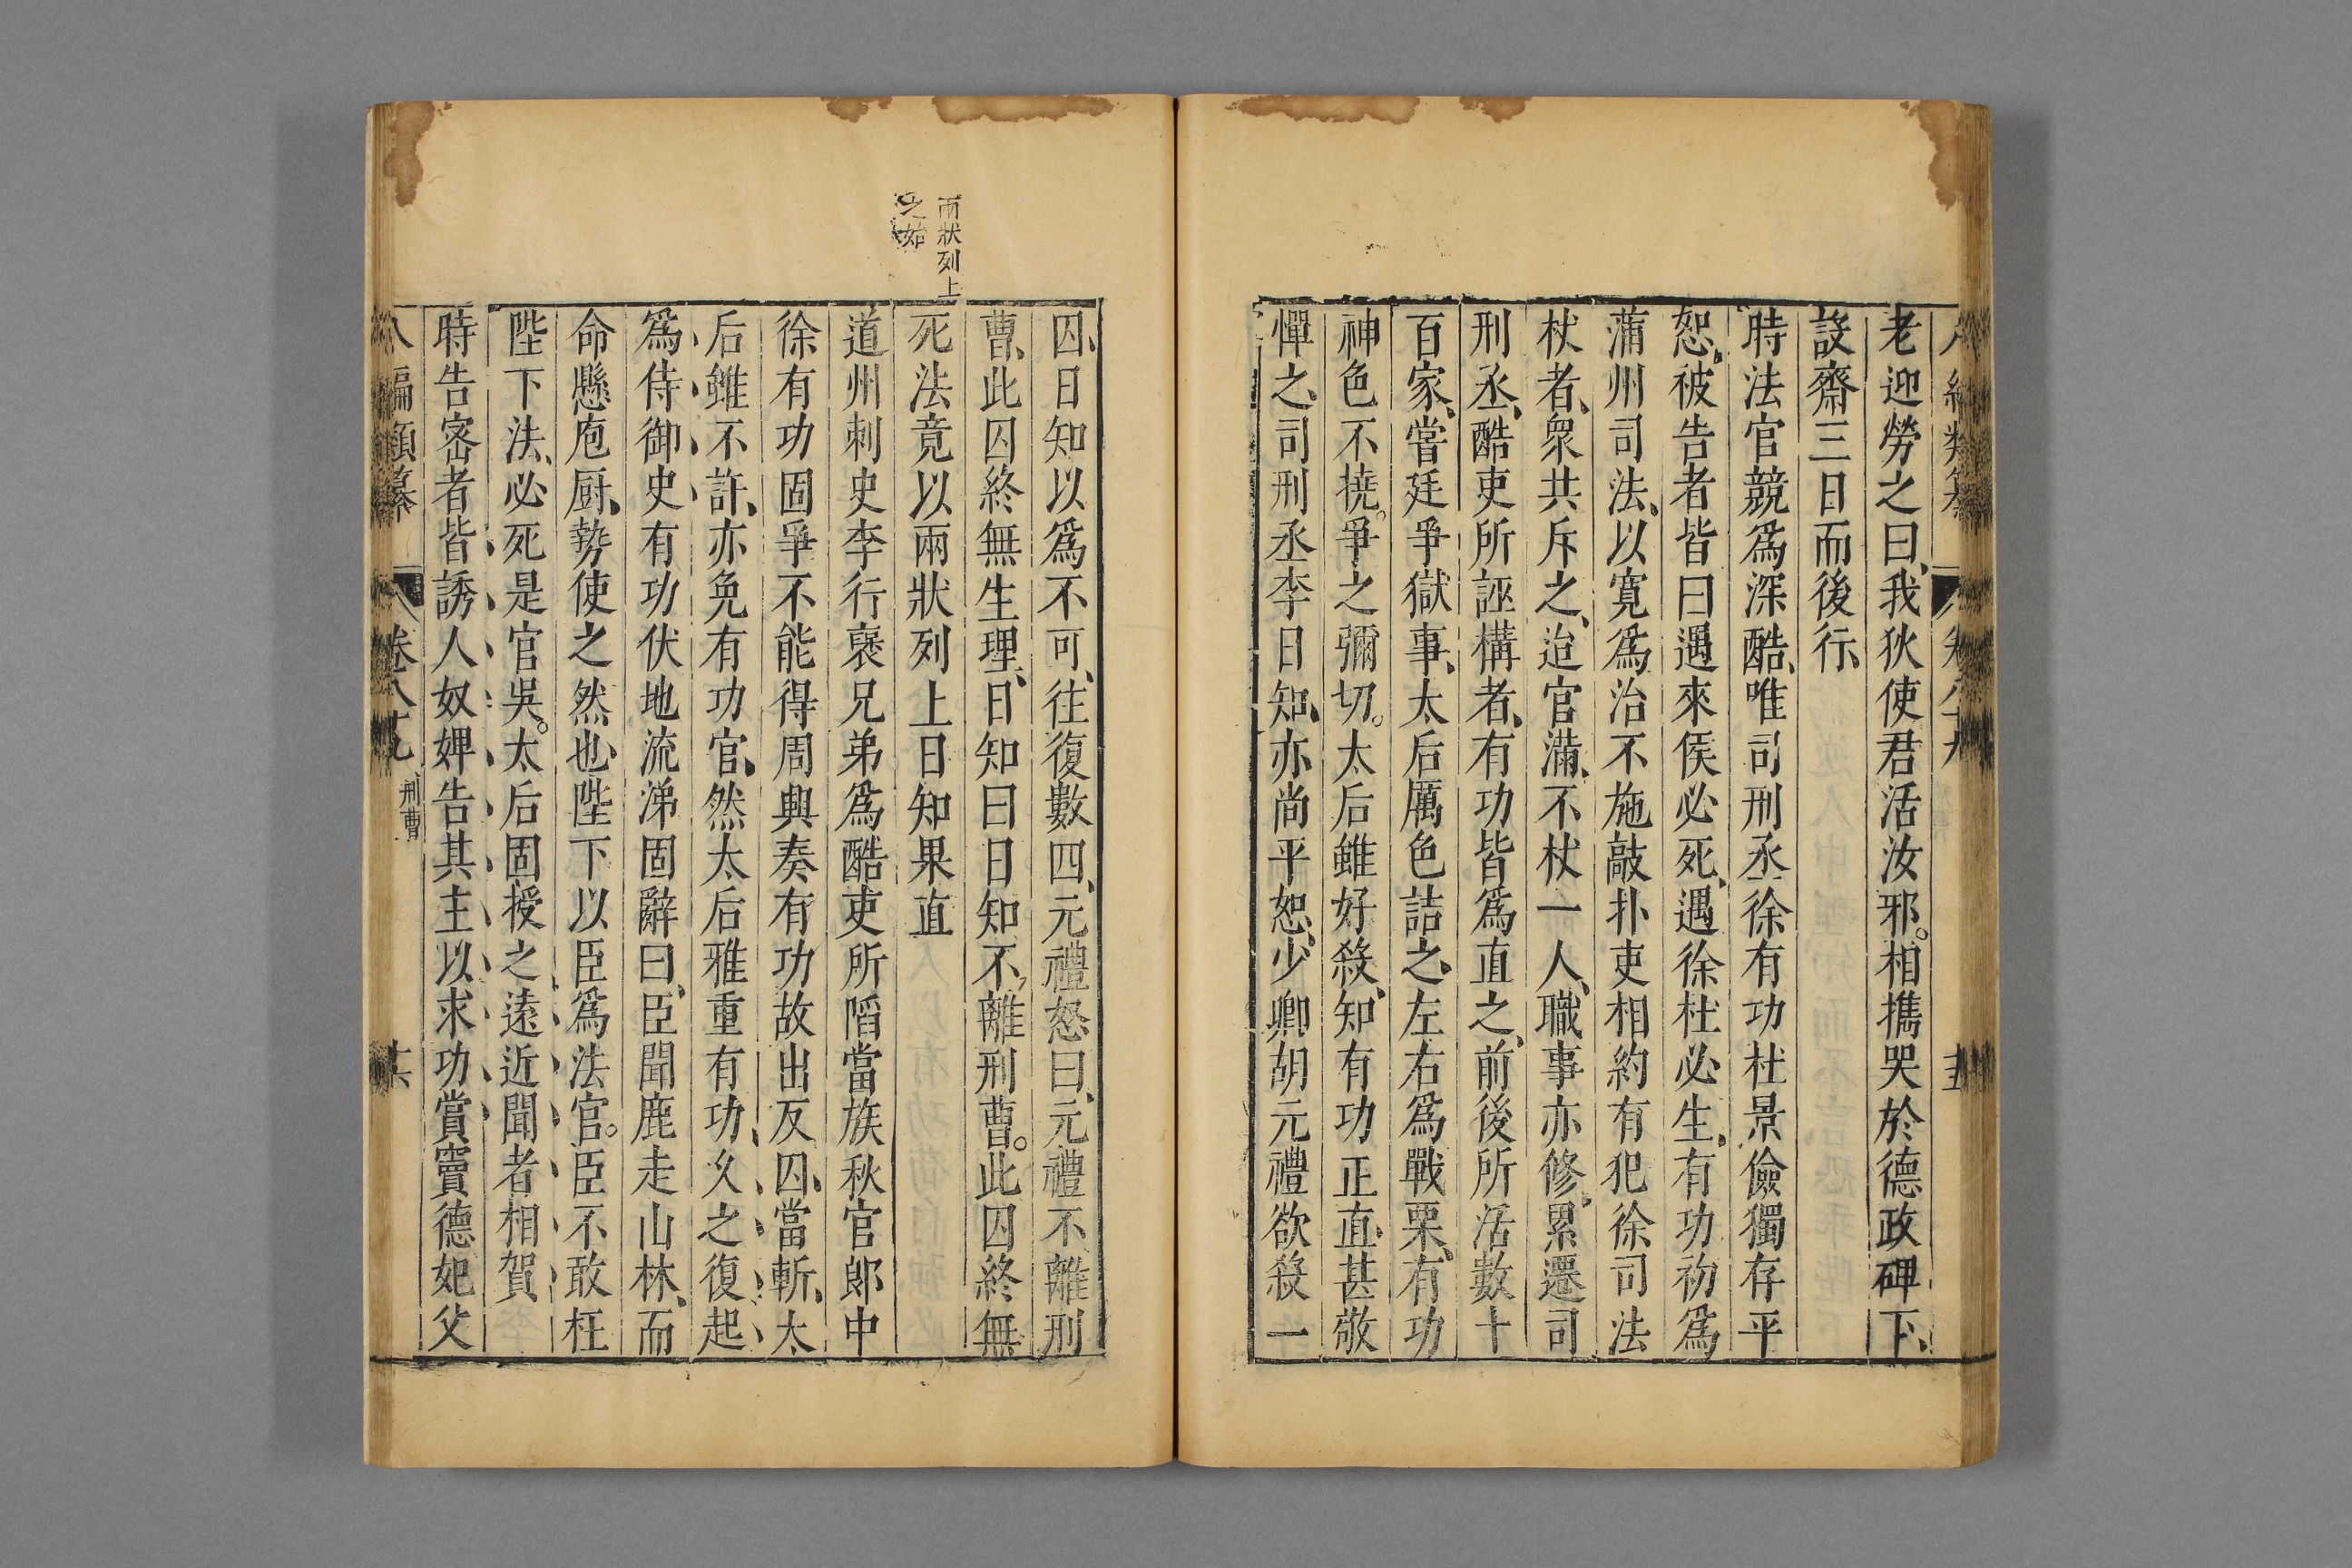 老迎勞之曰、我狄使君活汝邪。相擕哭於德政碑下、
設齋三日而後行、
時法官競爲深酷、唯司刑丞徐有功杜景儉獨存平
恕、被告者皆曰遇來侯必死、遇徐杜必生、有功初爲
蒲州司法、以寛爲治不施敲扑吏相約有犯徐司法
杖者、衆共斥之、迨官滿、不杖一人、職事亦修、累遷司
刑丞、酷吏所誣構者、有功皆爲直之、前後所活數十
百家、嘗廷爭獄事、太后厲色詰之、左右爲戰栗、有功
神色不撓。爭之彌切。太后雖好殺、知有功正直、甚敬
憚之、司刑丞李日知、亦尚平恕、少卿胡元禮欲殺一
囚、日知以爲不可、往復數四、元禮怒曰、元禮不離刑
曹、此囚終無生理、日知曰日知不離刑曹。此囚終無
死法竟以兩狀列上日知果直
道州刺史李行褒兄弟爲酷吏所陷當族秋官郎中
徐有功固爭不能得周興奏有功故出反囚、當斬、太
后雖不許、亦免有功官、然太后雅重有功、乆之復起
爲侍御史有功伏地流涕固辭曰、臣聞鹿走山林、而
命懸庖厨、勢使之然也、陛下以臣爲法官。臣不敢枉
陛下法、必死是官吳。太后固授之遠近聞者相賀
時告密者皆誘人奴婢告其主以求功賞竇德妃父
兩狀列上
之始
八編類纂 卷八十九 刑曹 十六